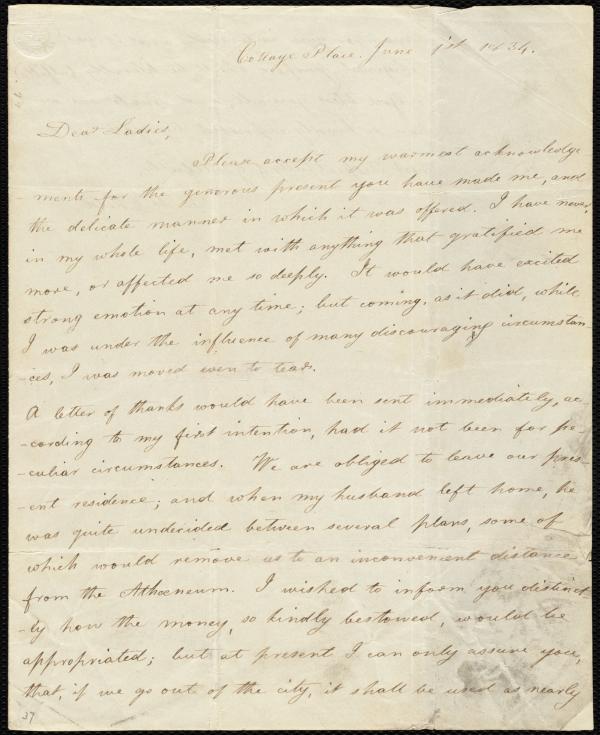 Cottage Place. June 1st 1834.
Dear Ladies,
Please accept my warmest acknowledge
ments for the generous present you have made me, and
the delicate manner in which it was offered. I have never,
in my whole life, met with anything that gratified me
more, or affected me so deeply. It would have excited
strong emotion at any time; but coming, as it did, while
I was under the influence of many discouraging circumstan-
-ces, I was moved even to tears.
A letter of thanks would have been sent immediately, ac-
-cording to my first intention, had it not been for pe-
-culiar circumstances. We are obliged to leave our pres-
-ent residence; and when my husband left home, he
was quite undecided between several plans, some of
which would remove us to an inconvenient distance
from the Athæneum. I wished to inform you distinct-
-ly how the money, so kindly bestowed, would be
appropriated; but at present I can only assure you,
that, if we go out of the city, it shall be used as nearly
37